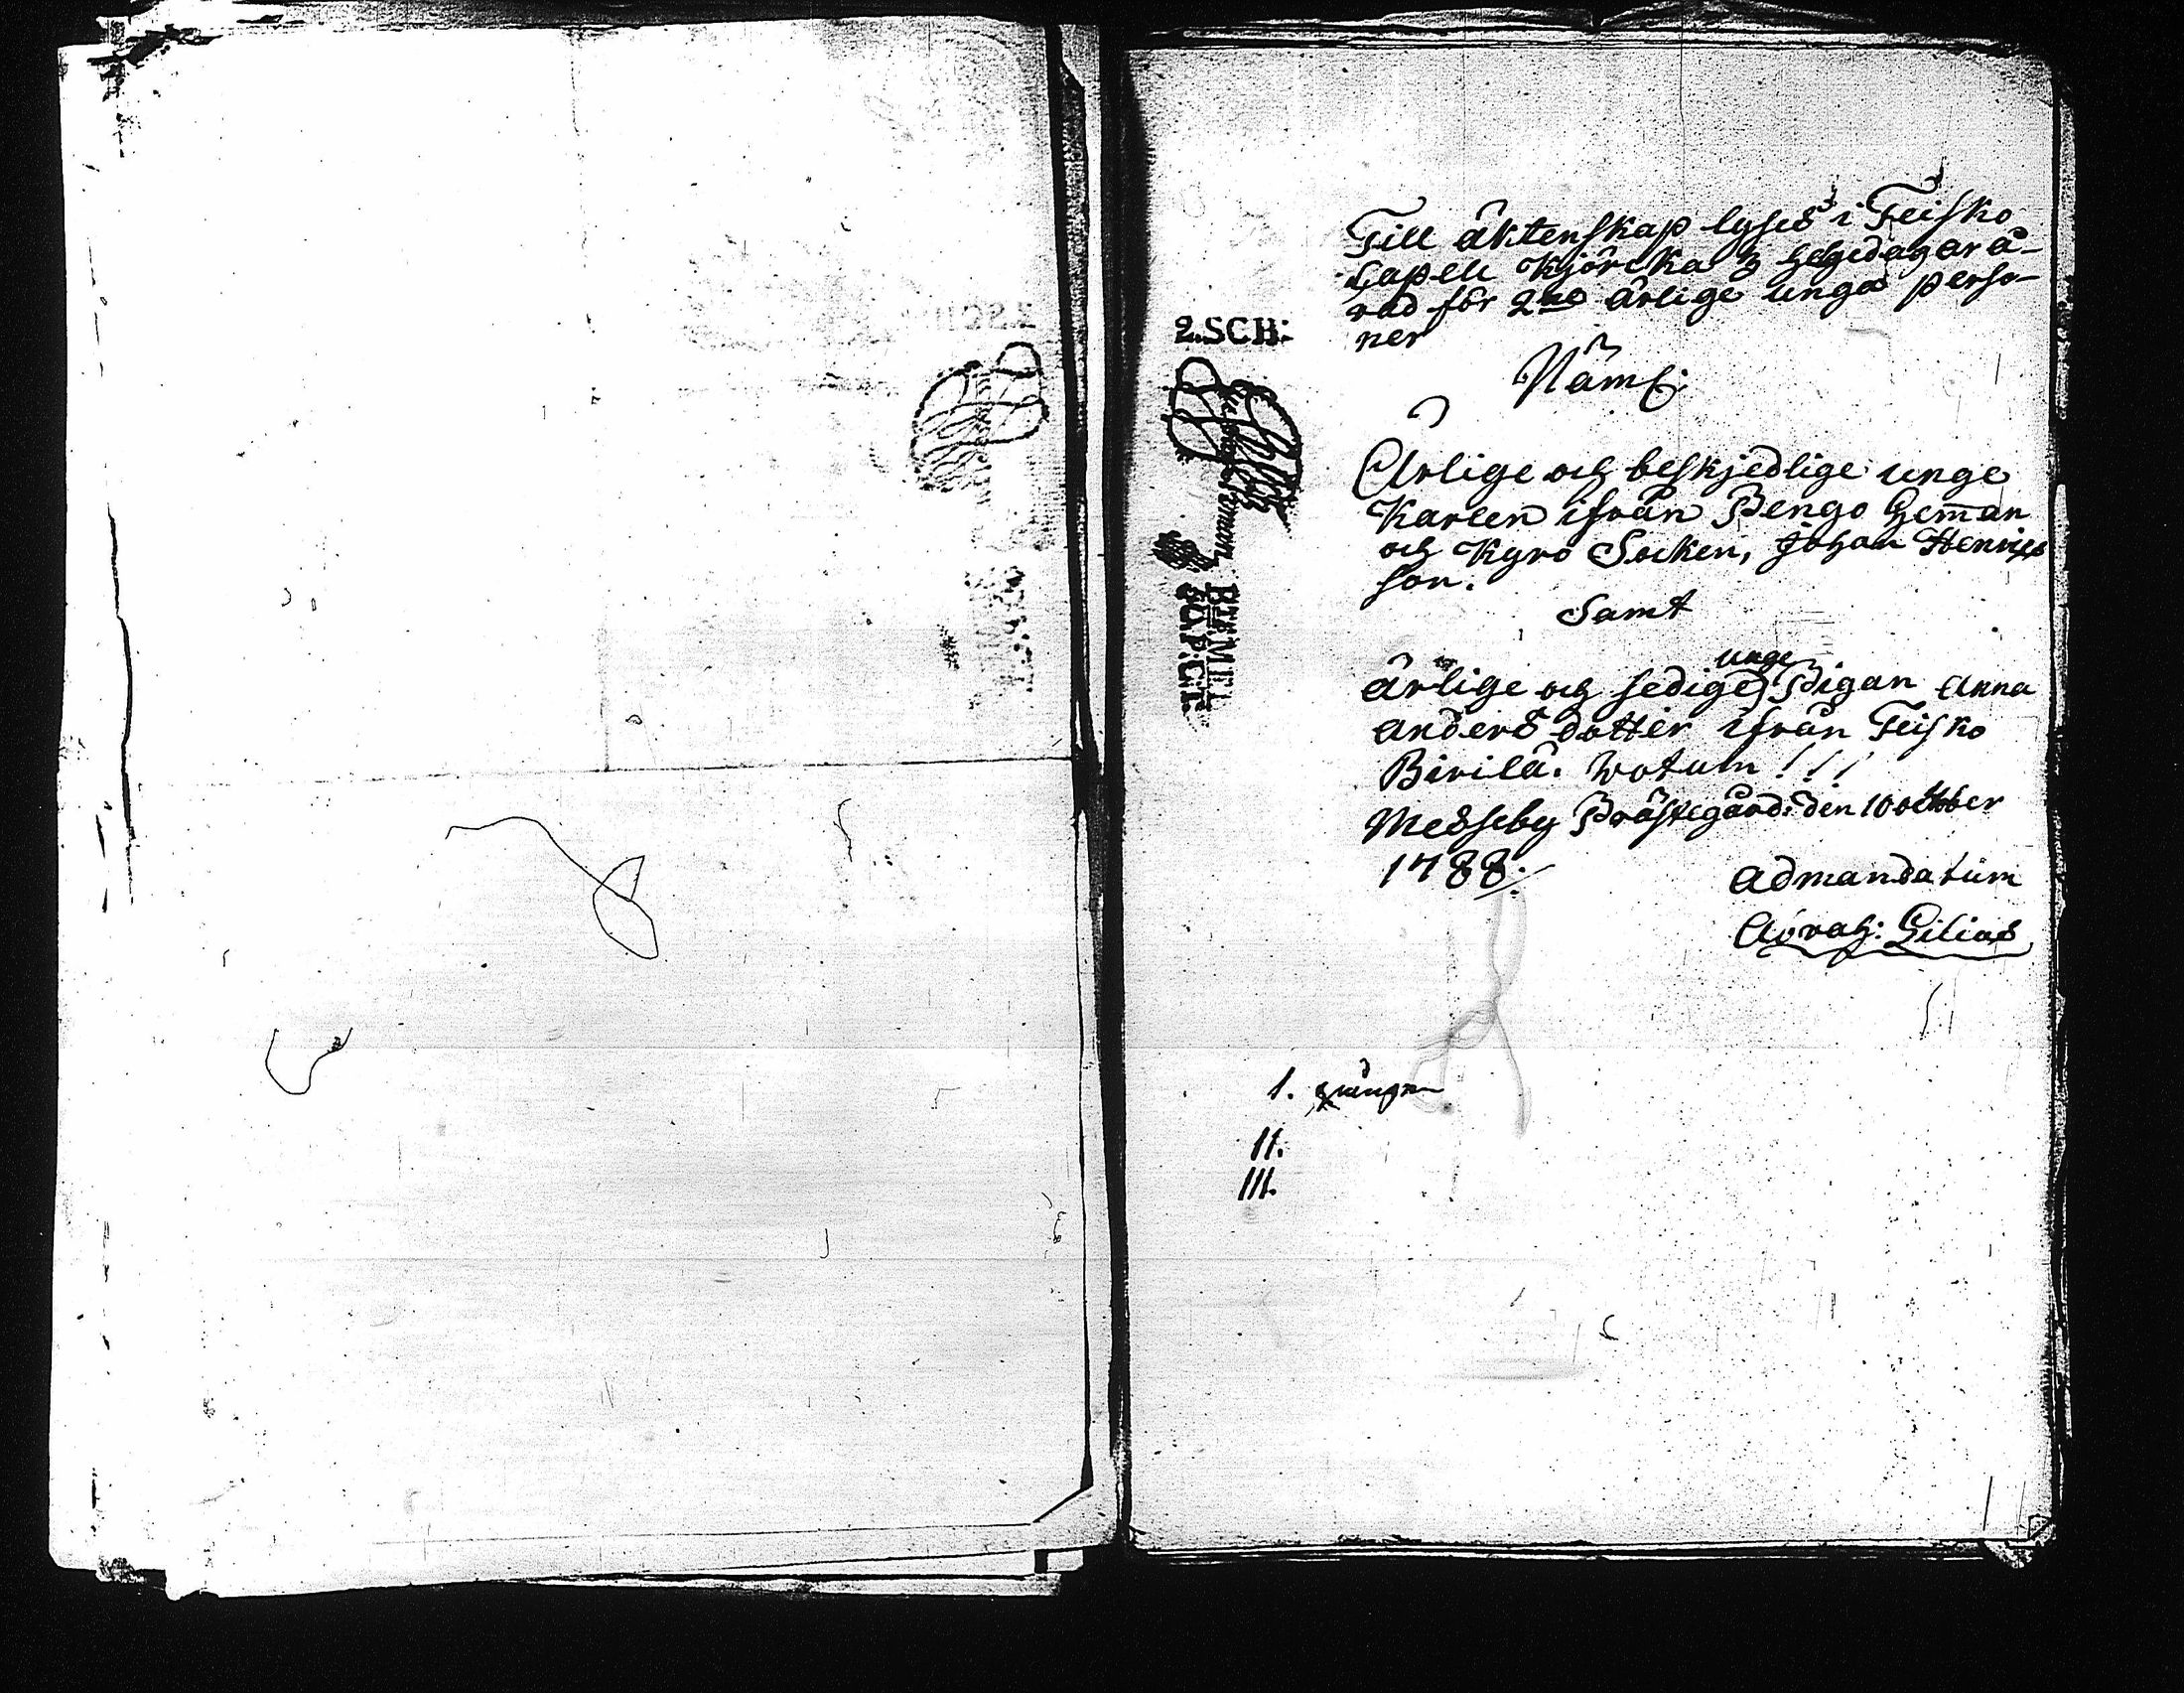 Till äktenskap lyses i Teisko
Capell Kjörcka 3 helgedagar å-
rad för 2ne ärlige unga perso-
ner
Näml:
Ärlige och beskjedlige unge
Karlen ifrån Pengo hemman
och Kyro Socken, Johan Henrics
son.
Samt
unge
ärlige och sedige Pigan Anna
Anders dotter ifrån Teisko
Birilä. Wotum!!!
Messeby Prästegård: den 10 october
1788.
Admandatum
Abrah: Lilius
2.SCH:
CHARTA SIGILLATA
1. gången
II.
III.